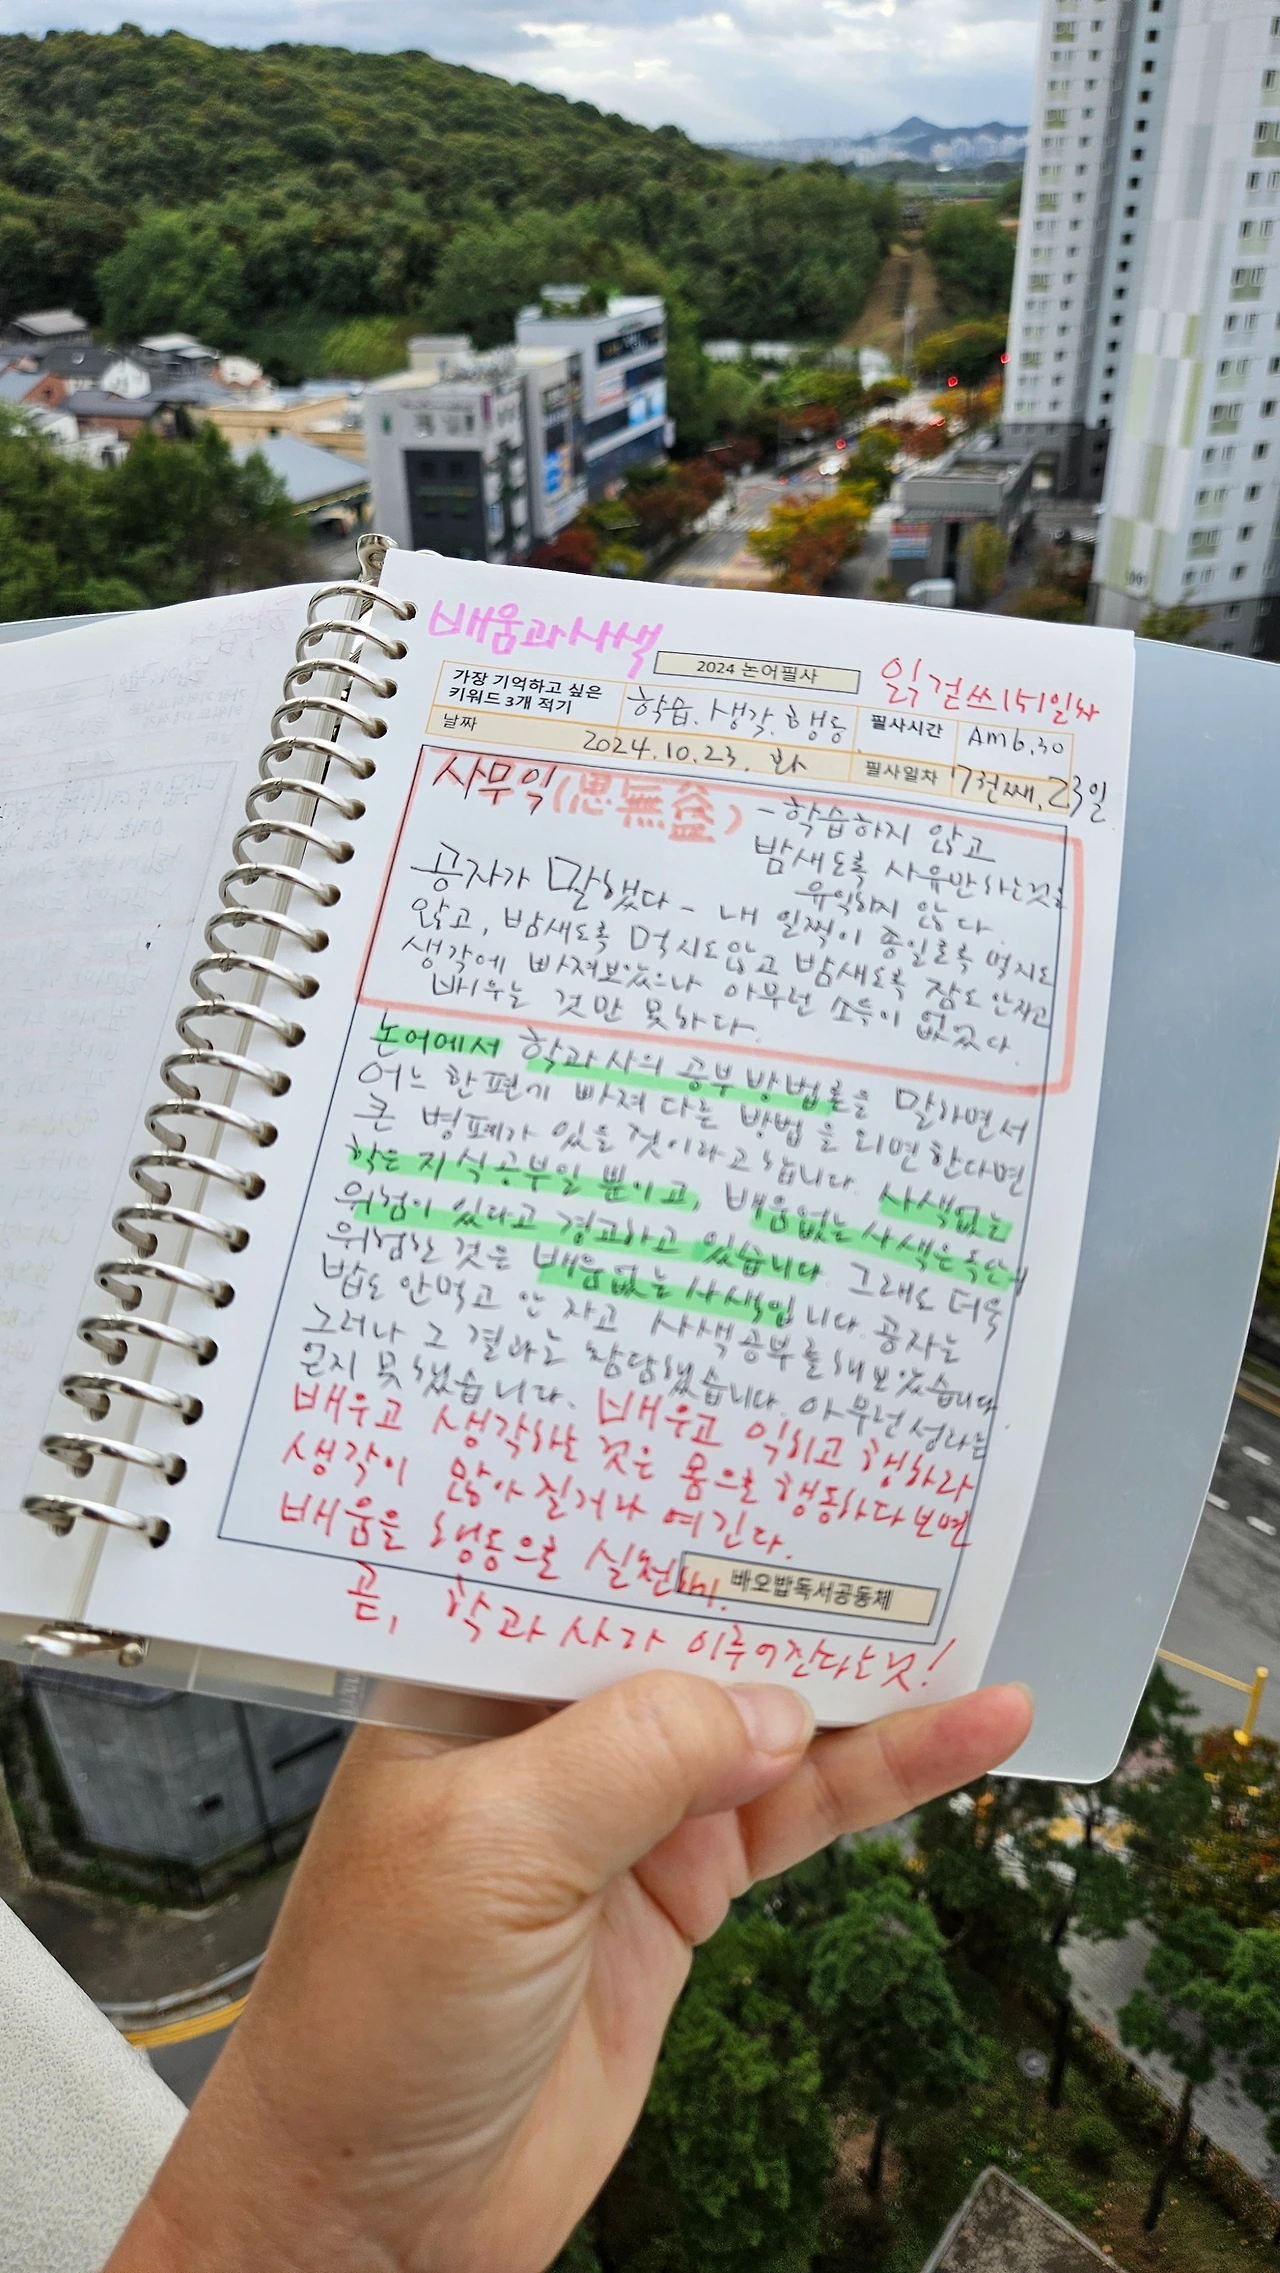 배움과사색
2024 논어필사
읽걷쓰151일차
가장 기억하고 싶은
키워드 3개 적기
학습. 생각. 행동
필사시간
Am6.30
날짜
2024.10.23. 화
필사일차
7천째, 23일
사무익(思無益)
- 학습하지 않고
밤새도록 사유만하는것은
유익하지 않다.
공자가 말했다 - 내 일찍이 종일토록 먹지도
않고, 밤새도록 먹지도않고 밤새도록 잠도 안자고
생각에 빠져보았으나 아무런 소득이 없었다.
배우는 것만 못하다.
논어에서 학과사의 공부방법론을 말하면서
어느 한편에 빠져 다른 방법을 외면한다면
큰 병폐가 있을 것이라고 합니다. 사색없는
학은 지식공부일 뿐이고, 배움없는 사색은 독단에
위험이 있다고 경고하고 있습니다. 그래도 더욱
위험한 것은 배움없는 사색입니다. 공자는
밥도 안먹고 안 자고 사색공부를 해보았습니다.
그러나 그 결과는 참담했습니다. 아무런 성과를
얻지 못했습니다. 배우고 익히고 행하라
배우고 생각하는 것은 몸으로 행동하다보면
생각이 많아질거라 여긴다.
배움을 행동으로 실천하기.
바오밥독서공동체
곧, 학과 사가 이루어진다는것!